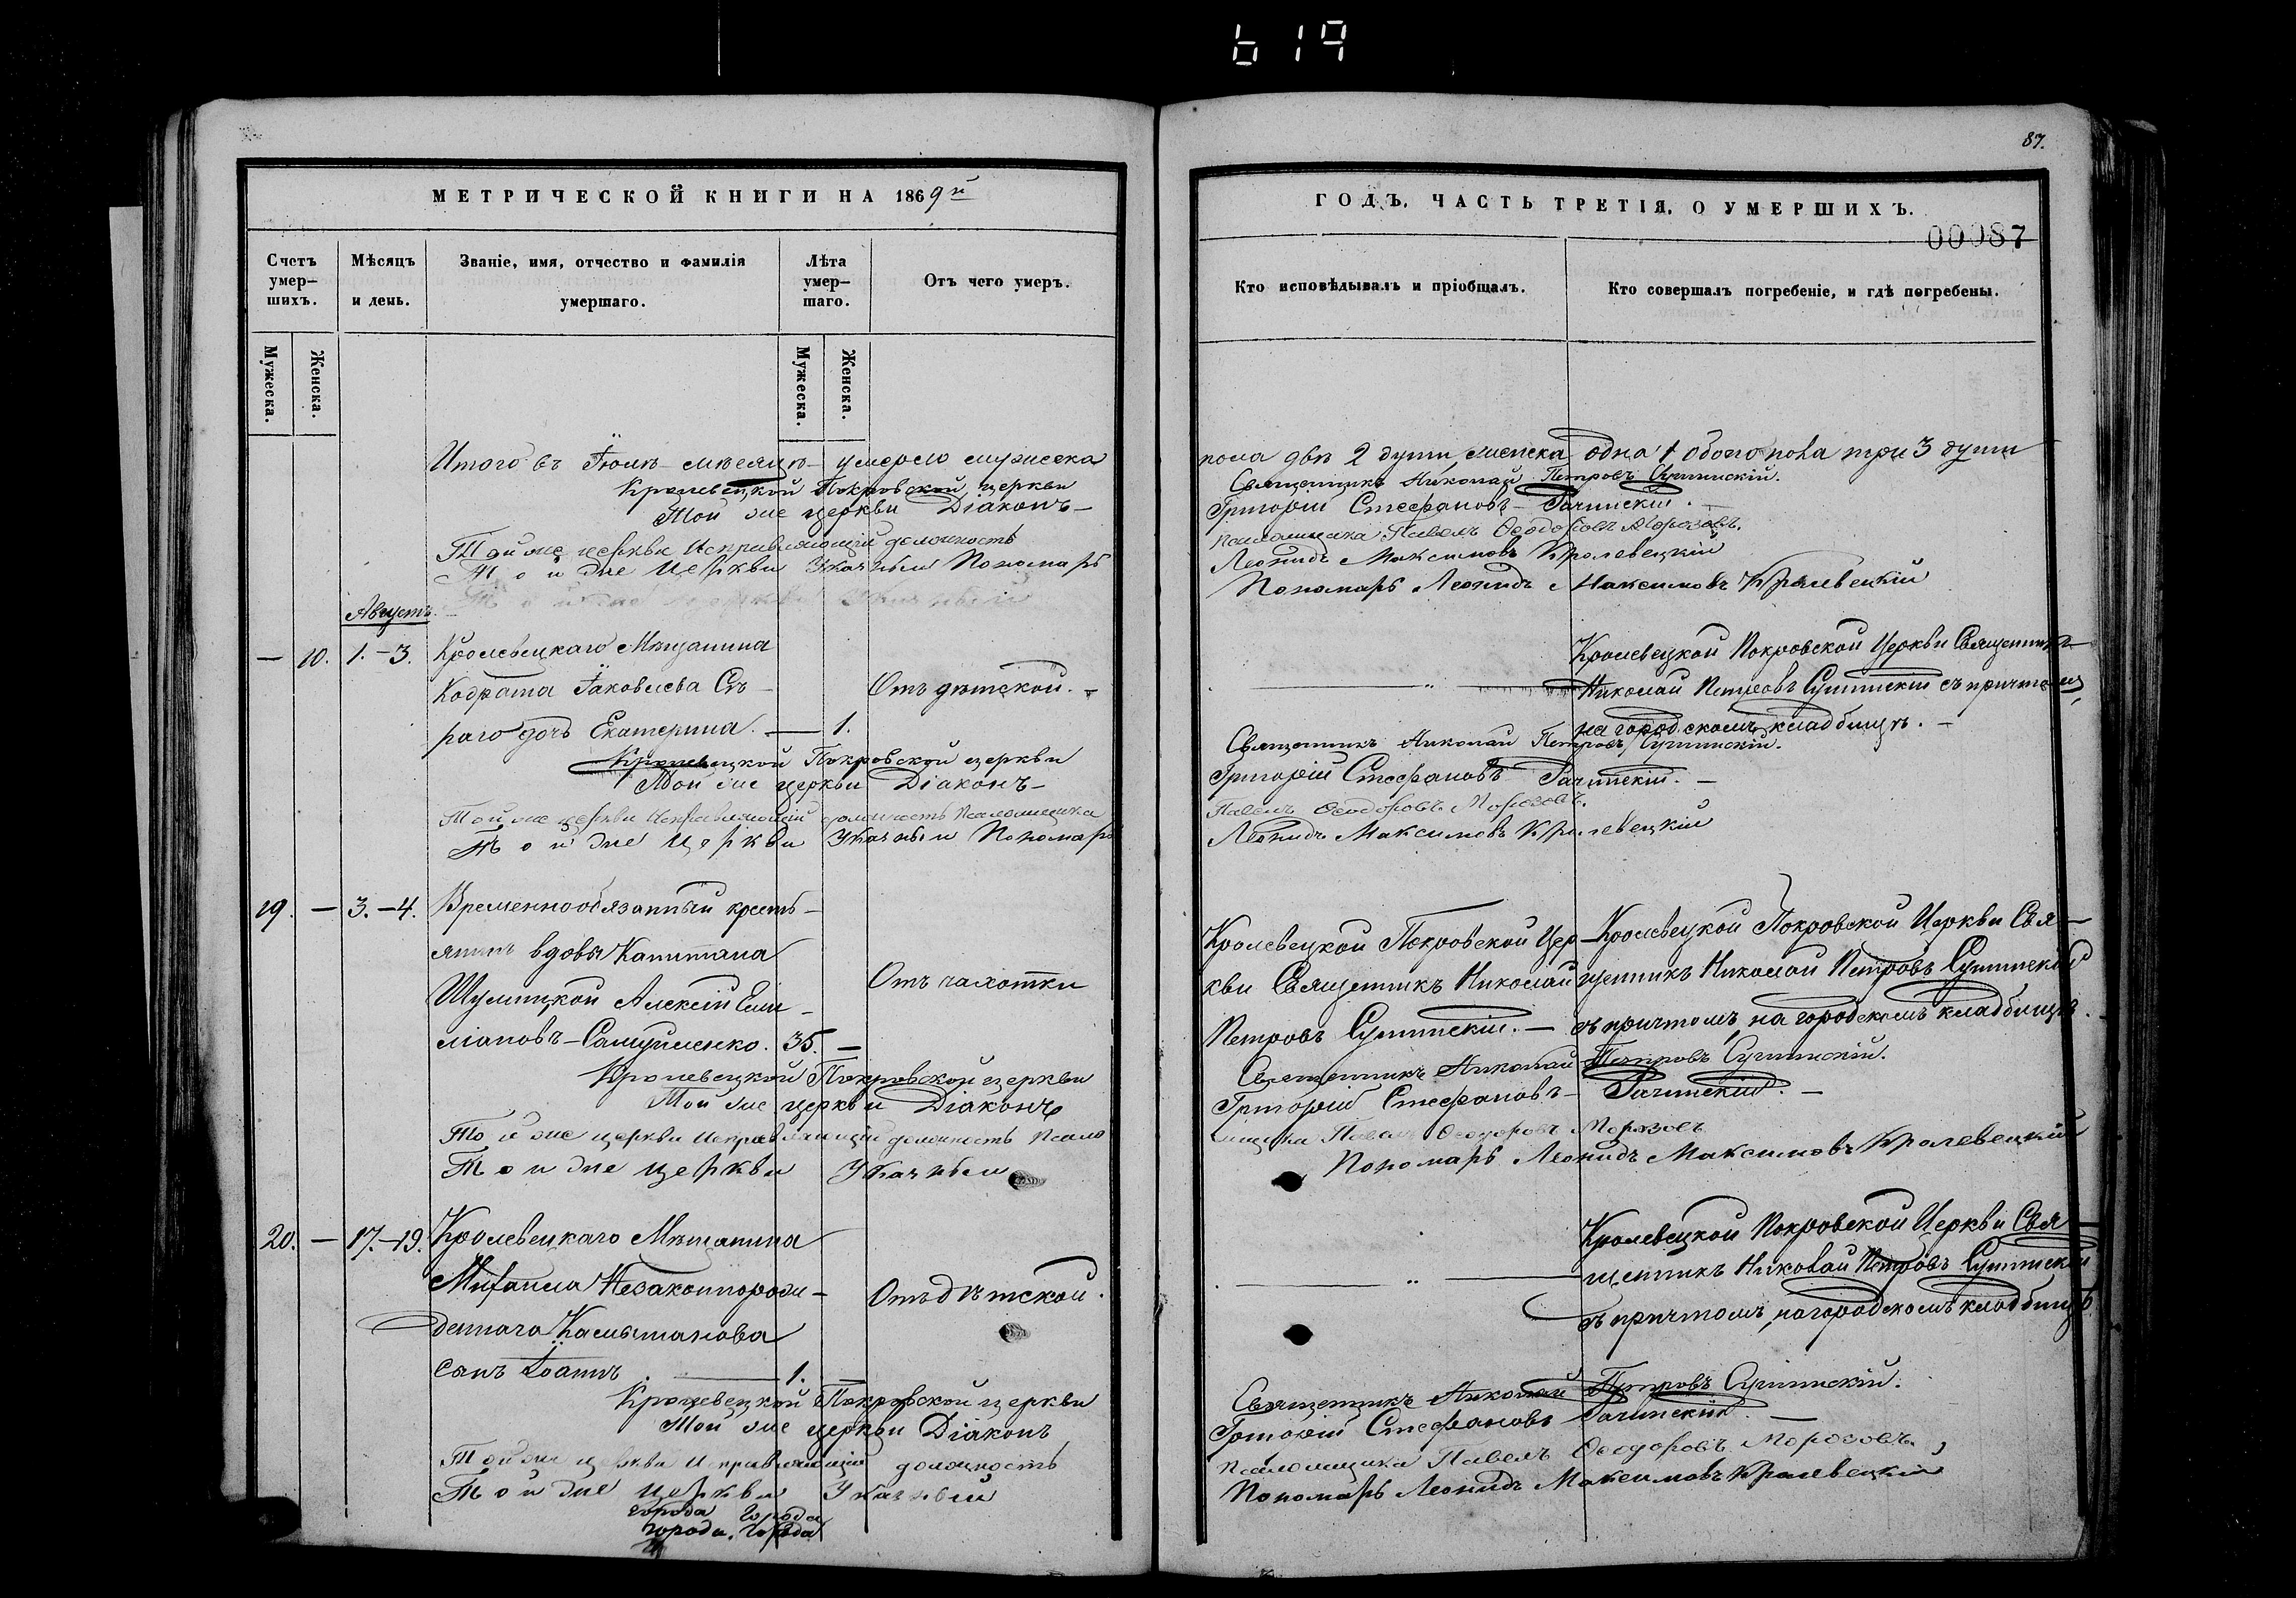 619
87.
МЕТРИЧЕСКОЙ КНИГИ НА 1869й
Счетъ умер-
шихъ.
Мѣсяцъ
и день.
Званіе, имя, отчество и фамилія
умершаго.
Лѣта
умер-
шаго.
Отъ чего умеръ.
Мужеска.
Женска.
Мужеска.
Женска.
Итого въ Іюлѣ мѣсяцѣ умерло мужеска
Кролевецкой Покровской церкви
Той же церкви Діаконъ
Той же церкви Исправляющій должность
Той же Церкви Указный Пономарь
Августъ.
— 10. 1.-3. Кролевецкаго Мѣщанина
Кодрата Іаковлева Сѣ-
раго дочь Екатерина. — 1.
Отъ дѣтской.
Кролевецкой Покровской церкви
Той же церкви Діаконъ
Той же церкви Исправляющій должность Псаломщика
Той же Церкви Указный Пономарь
19. — 3.-4. Временнообязанный кресть-
янинъ вдовы Капитана
Шумицкой Алексій Еми-
ліановъ Самуйленко. 35. —
Отъ чахотки
Кролевецкой Покровской церкви
Той же церкви Діаконъ
Той же церкви Исправляющій должность Псало
Той же Церкви Указный
20. — 17.-19. Кролевецкаго Мѣщанина
Михаила Незаконнорож-
деннаго Камытанова
сынъ Іоаннъ. — 1. —
Отъ дѣтской.
Кролевецкой Покровской церкви
Той же церкви Діаконъ
Той же церкви Исправляющій должность
Той же Церкви Указный
города города
города. города
ГОДЪ, ЧАСТЬ ТРЕТІЯ, О УМЕРШИХЪ.
00087
Кто исповѣдывалъ и пріобщалъ.
Кто совершалъ погребеніе, и гдѣ погребены.
пола двѣ 2 души, женска одна 1 обоего пола три 3 души
Священникъ Николай Петровъ
Григорій Стефановъ
псаломщика Павелъ Ѳеодоровъ Морозовъ.
Леонидъ Максимовъ Кролевецкій
Пономарь Леонидъ Максимовъ Кролевецкій
Кролевецкой Покровской Церкви Священникъ
Николай Петровъ съ причтомъ,
на городскомъ кладбищѣ. —
Священникъ Николай Петровъ
Григорій Стефановъ
Павелъ Ѳеодоровъ Морозовъ.
Леонидъ Максимовъ Кролевецкій
Кролевецкой Покровской Цер-
кви Священникъ Николай
Петровъ
Кролевецкой Покровской Церкви Свя-
щенникъ Николай Петровъ
съ причтомъ, на городскомъ кладбищѣ.
Священникъ Николай Петровъ
Григорій Стефановъ
мщика Павелъ Ѳеодоровъ Морозовъ
Пономарь Леонидъ Максимовъ Кролевецкій
Кролевецкой Покровской Церкви Свя-
щенникъ Николай Петровъ
съ причтомъ, на городскомъ кладбищѣ
Священникъ Николай Петровъ
Григорій Стефановъ
Псаломщика Павелъ Ѳеодоровъ Морозовъ.
Пономарь Леонидъ Максимовъ Кролевецкій